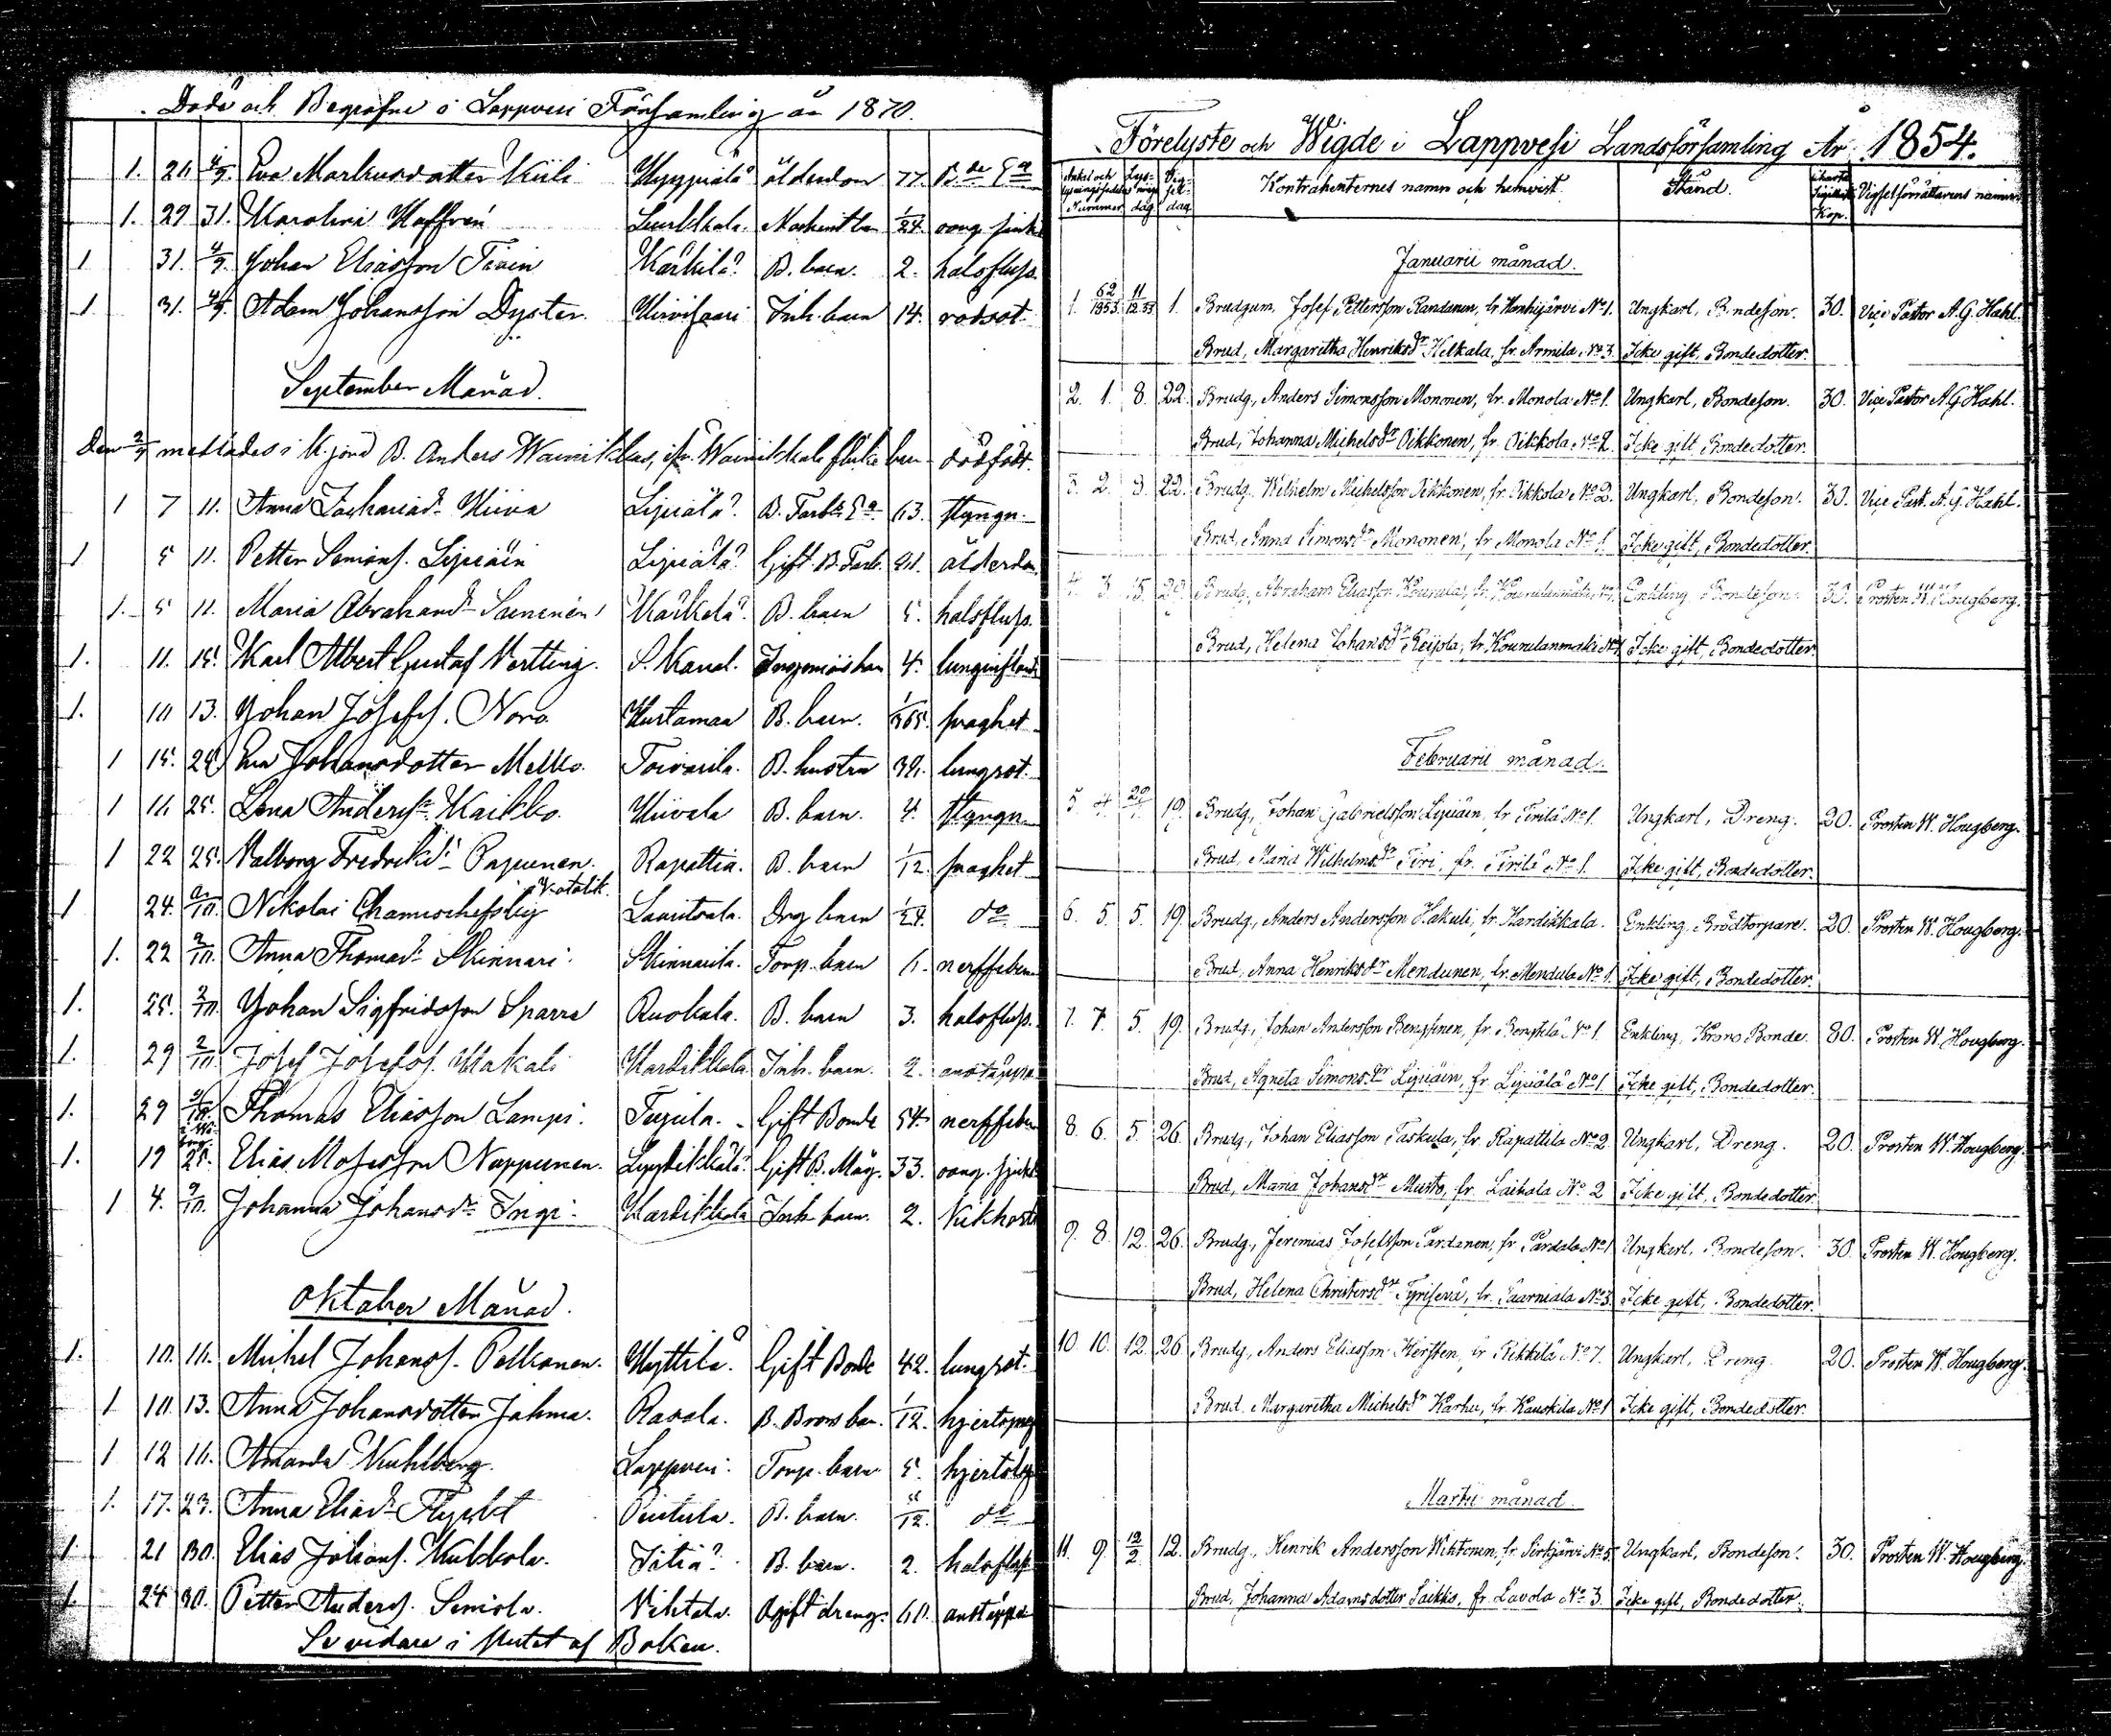 Döde och Begrafne i Lappvesi Församling år 1870.
1. 26 4/9. Eva Markusdotter Kiili Hyppiälä ålderdom 77. B.de E.a
1. 29 31. Karolina Hoffrén Laukkala 1/24. oang. sjukd
1 31. 4/9. Johan Eliasson Tiain Kärkilä B. barn. 2. halsfluss.
1 31. 4/9. Adam Johansson Dyster. Hirvisaari Inh. barn 14. rödsot.
September Månad.
1 7 11. Anna Zachariad:r Hiiva Lyijälä B. Tarb:s E:a 63. styngn.
1 5 11. Petter Simonss. Lyijäin Lyijälä Gift B. Tarb. ålderdom
1. 5 11. Maria Abrahamd:r Saininen Kärkelä B. barn 5. halsfluss.
1. 11. 15. Karl Albert Gustaf Vertting. S. Kanal. Ingeniörs barn 4. lunginflam
1. 10 13. Johan Josefss. Noro. Hurtamaa B. barn. 1/365. svaghet
1 15. 25. Eva Johansdotter Melko. Toivarila. B. hustru 32. lungsot.
1 16 25. Lena Anderss:r Kaikko. Hiivala B. barn. 4. styngn.
1 22 25. Valborg Fredriksd:r Papunen. Rapattila. B. barn 1/12. svaghet
Katolik.
1 24. 2/10. Nikolai Lauritsala. Drg barn 1/24. d:o
1. 22 2/10. Anna Thomasd:r Skinnari Skinnarila. Torp. barn 6. nerffeber
1. 25. 2/10. Johan Sigfridsson Sparra Ruokola. B. barn 3. halsfluss.
1. 29 2/10. Josef Josefss. Hakali Hartikkala Inh. barn. 2. andtäppa
1. 29 Thomas Eliasson Lampi. Tujula. Gift Bonde 54. nerffeber
1. 19 25. Elias Mosesson Nappunen. Gift B. Måg. 33. oang. sjukd
1 4. 9/10. Johanna Johansd:r Inqi Hartikkala Inh. barn. 2. Kikhosta
Oktober Månad.
1. 10. 16. Mikel Johanss. Pelkonen. Hyttilä. Gift Bonde 42. lungsot.
1 10. 13. Anna Johansdotter Jahma. Rasala. B. Brors bar. 1/12. hjertspr
1 12 16. Amanda Kuhlberg. Lappvesi Torp. barn 5. hjertslag
1. 17. 23. Anna Eliasd:r Flyckt Peutula. B. barn. d:o
1. 21 30. Elias Johanss. Kukkola. Jätiä? B. barn. 2. halsfluss
1. 24 30. Petter Anderss. Simola. Vihtola. Ogift dreng. 60. andtäppa
Se vidare i slutet af Boken.
Förelyste och Wigde i Lappvesi Landsförsamling År 1854.
Kontrahenternes namn och hemvist. Stånd. Kop. Vigselförrättarens namn
Januarii månad.
1. 62/1853. 11/12.53 1. Brudgum, Josef Pettersson Randanen, fr. Hanhijärvi No 1. Ungkarl, Bondeson. 30. Vice Pastor A. G. Hahl.
Brud, Margaretha Henriksd:r Helkala, fr. Armila No 3. Icke gift, Bondedotter.
2. 1. 8. 22. Brudg., Anders Simonsson Mononen, fr. Monola No 1. Ungkarl, Bondeson. 30. Vice Pastor A. G. Hahl.
Brud, Johanna Michelsd:r Oikkonen, fr. Oikkola No 2. Icke gift, Bondedotter.
3. 2. 8. 22. Brudg., Wilhelm Michelsson Oikkonen, fr. Oikkola No 2. Ungkarl, Bondeson. 30. Vice Past. A. G. Hahl.
Brud, Anna Simonsd:r Mononen, fr. Monola No 1. Icke gift, Bondedotter.
4. 3. 15. 29. Brudg., Abraham Eliasson Kourula, fr. Kourulanmäki Enkling Bondeson. 30. Prosten W. Hougberg.
Brud, Helena Johansd:r Reijola, fr. Kourulanmäki No 1. Icke gift, Bondedotter.
Februarii månad.
5. 4. 29/1 19. Brudg., Johan Gabrielsson Lyijäin, fr. Tirilä No 1. Ungkarl, Dreng. 20. Prosten W. Hougberg.
Brud, Maria Wilhelmsd:r Tiri, fr. Tirilä No 1. Icke gift, Bondedotter.
6. 5. 5. 19. Brudg., Anders Andersson Hakuli, fr. Hardikkala. Enkling, Brödtorpare. 20. Prosten W. Hougberg.
Brud, Anna Henriksd:r Mendunen, fr. Mendula No 1. Icke gift, Bondedotter.
7. 7. 5. 19. Brudg., Johan Andersson Bengtinen, fr. Bengtilä No 1. Enkling, Krono Bonde. 80. Prosten W. Hougberg.
Brud, Agneta Simonsd:r Lyijäin, fr. Lyijälä No 1. Icke gift, Bondedotter.
8. 6. 5. 26. Brudg., Johan Eliasson Taskula, fr. Rapattila No 2. Ungkarl, Dreng. 20. Prosten W. Hougberg.
Brud, Maria Johansd:r Musto, fr. Laihola No 2 Icke gift, Bondedotter.
9. 8. 12. 26. Brudg., Jeremias Josefsson Pardanen, fr. Pardala No 1 Ungkarl, Bondeson. 30. Prosten W. Hougberg.
Brud, Helena Christersd:r Tyrisevä, fr. Saarniala No 3. Icke gift, Bondedotter.
10. 10. 12. 26. Brudg., Anders Eliasson Kersten, fr. Pikkilä No 7. Ungkarl, Dreng. 20. Prosten W. Hougberg.
Brud, Margaretha Michelsd:r Karhu, fr. Kauskila No 1 Icke gift, Bondedotter.
Martii månad.
11. 9. 12/2 12. Brudg., Henrik Andersson Wihtonen, fr. Pirhjärvi No 5. Ungkarl, Bondeson. 30. Prosten W. Hougberg.
Brud, Johanna Adamsdotter Saikko, fr. Lavola No 3. Icke gift, Bondedotter.